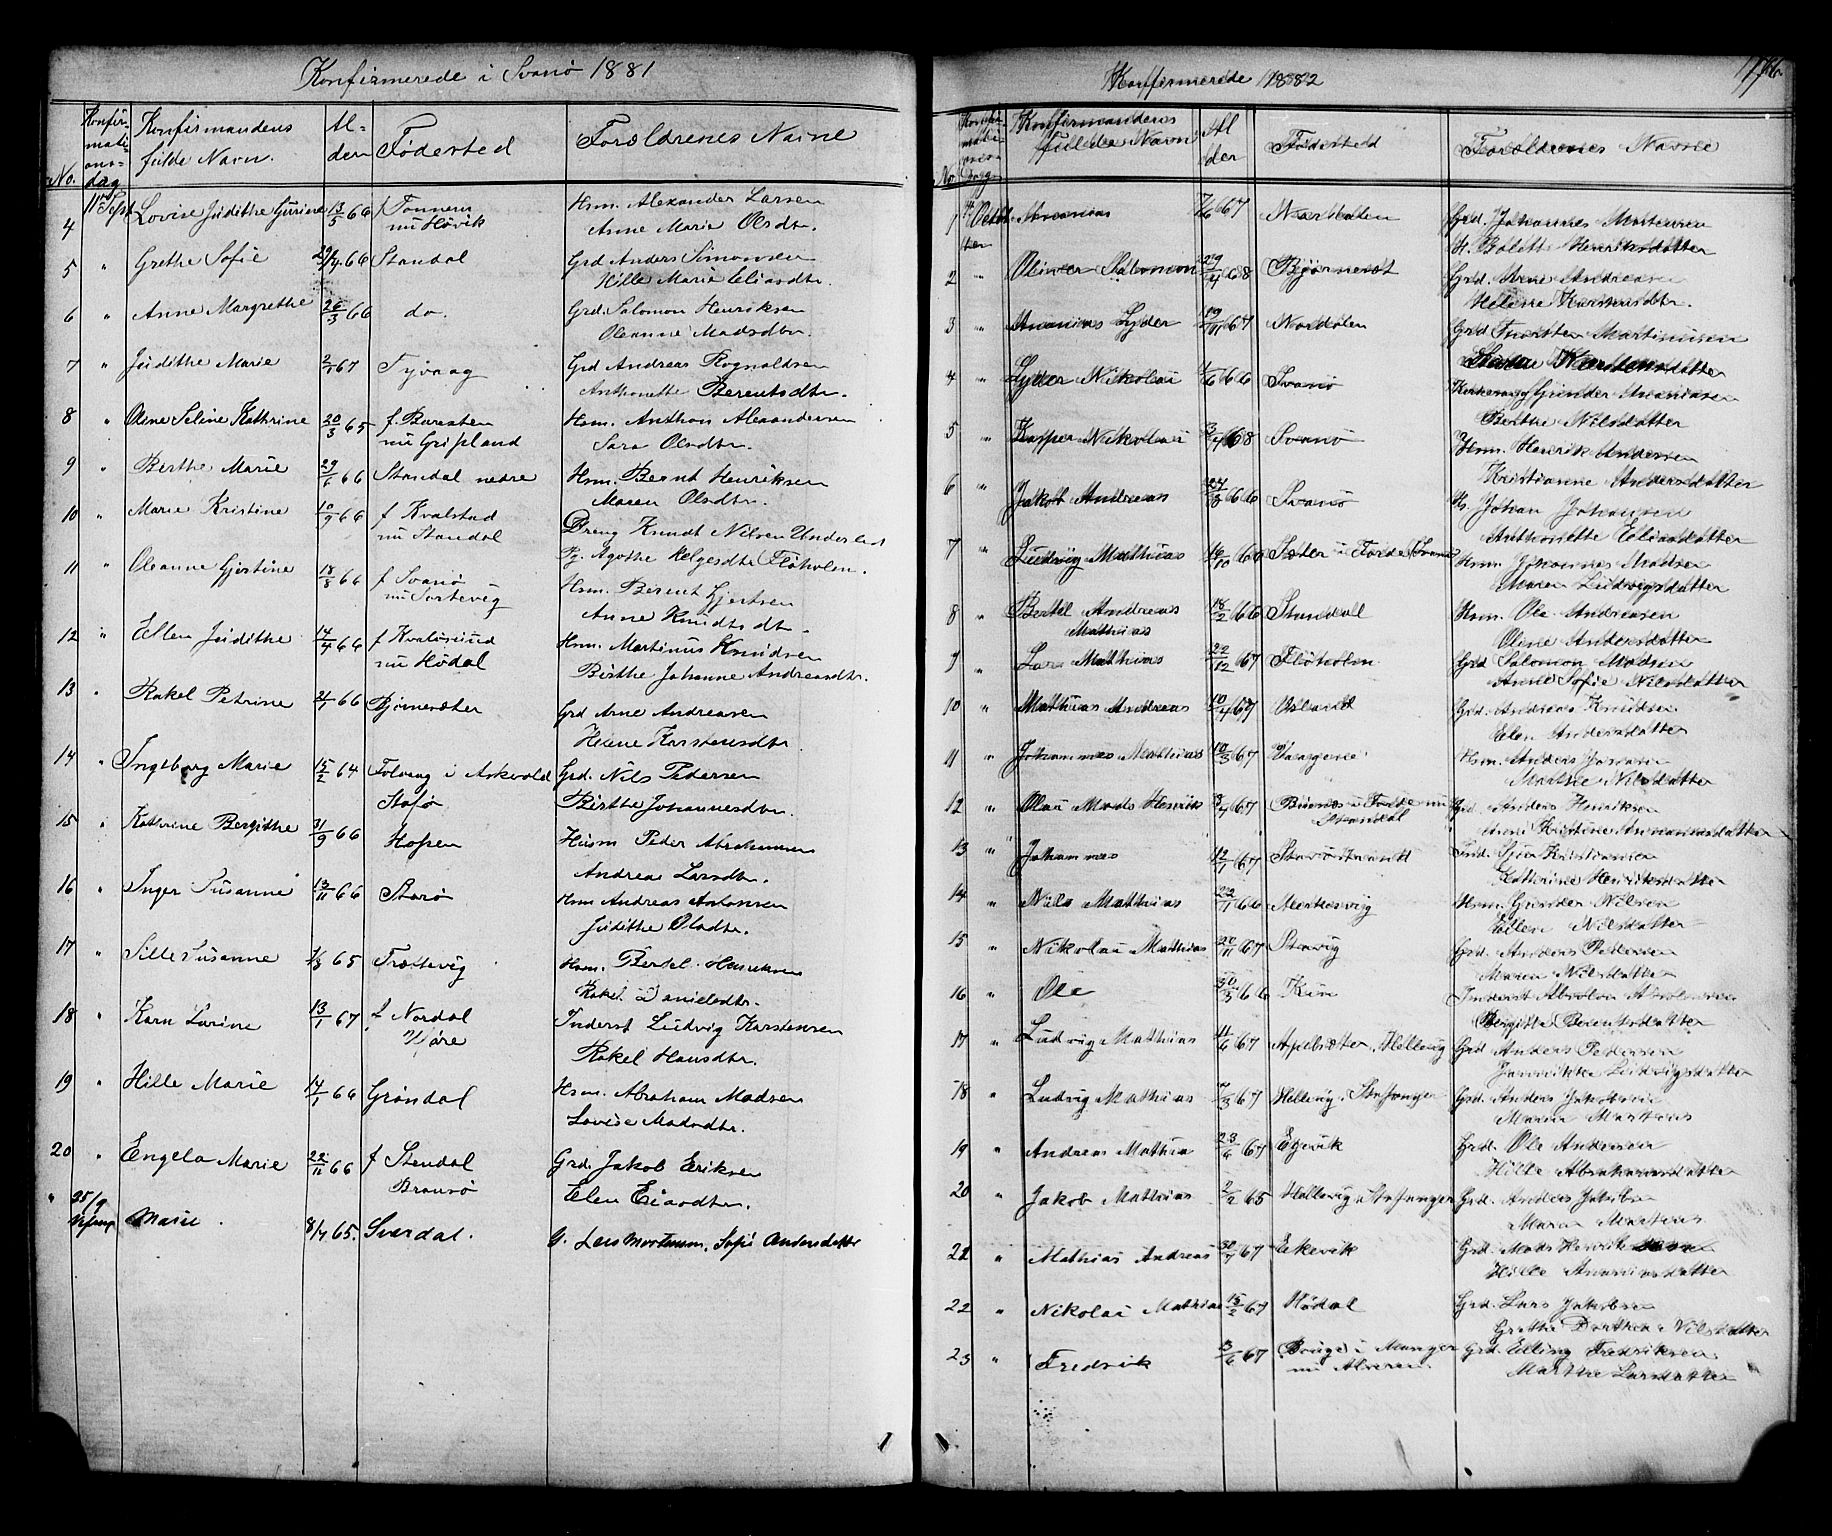 Konfirmerede i Svanø 1881
No. Konfirmationsdag Konfirmandens fulde Navn. Alder Fødested Forældrenes Navne
4 11te Sept Lovise Judithe 13/5 66 f Tonnern Hsm. Alexander Larsen
nu Høvik Anne Marie Olsdtr.
5 " Grethe Sofie 29/4 66 Standal Grd Anders Simonsen
Hille Marie Eliasdtr.
6 " Anne Margrethe 26/3 66 do. Grd. Salomon Henriksen
Oleanne Madsdtr
7 " Judithe Marie 2/1 67 Tyvaag Grd Andreas Rognaldsen
Anthonette Berentsdtr.
8 " Oline Seline Kathrine 20/3 65 f. Baresten Hsm. Anthon Alexandersen
nu Gripland Sara Olsdtr.
9 " Berthe Marie 29/1 66 Standal nedre Hsm. Bernt Henriksen
Maren Olsdtr.
10 " Marie Kristine 10/9 66 f Kvalstad Dreng Knudt Nilsen
nu Standal Pg. Agothe Helgesdtr Fløholm.
11 " Oleanne Gjertine 18/8 66 f Svanø Hsm. Bernt Gjertsen
nu Sortevig Anne Knudtsdtr.
12 " Ellen Judithe 14/4 66 f Kvaløsund Hsm. Martinus Knudsen
nu Hødal Birthe Johanne Andreasdtr.
13 " Rakel Petrine 21/1 66 Bjørnesæter Grd Arne Andreasen
Helene Karstensdtr.
14 " Ingeborg Marie 15/2 64 Folvaag i Askvold Grd. Nils Pedersen
Stafø Birthe Johannesdtr.
15 " Kathrine Bergithe 31/9 66 Hofsen Husm Peder Abrahamsen
Andrea Larsdtr.
16 " Inger Susanne 13/11 66 Starø Hsm Andreas Antonsen
Judithe Olsdtr.
17 " Sille Susanne 1/8 65 Trættevig Hsm. Bertel Henriksen
Rakel Danielsdtr.
18 " Karn Larine 13/1 67 f Nordal Inderst Ludvig Karstensen
Rakel Hansdtr.
19 " Hille Marie 14/1 66 Grøndal Hsm. Abraham Madsen
Lovise Madsdtr.
20 " Engela Marie 22/11 66 f Standal Grd. Jakob Eriksen
Bransø Elen
" 25/9 Marie. 8/4 65. Svardal. G. Lars Mortensen, Sofie Andersdatter
Konfirmerede 1882
176
No. Konfirmationsdag Konfirmandens fulde Navn Alder Fødested Forældrenes Navne
1 Octob Ananias 7/6 67 Nordalen Grd. Johannes Mortensen
ter H. Bolette Henriksdatter
2 " Oliver Salomon 29/4 68 Bjørneset Grd. Arne Andreasen
Helene Karstensdtr.
3 " Ananias Lyder 19/11 67 Nordalen Grd Martinusen
Karstensdatter
4 " Lyder Nikolai 1/6 66 Svanø Gunder Ananiasen
Berthe Nilsdatter
5 " Kasper Nikolai 3/4 68 Svanø Hsm. Henrik Andersen
Kristianne Andersdatter
6 " Jakob Andreas 24/3 66 Svanø Hs. Johan Johansen
Anthonette Eliasdatter
7 " Ludvig Mathias 16/10 66 Sæter i Førde Hsm. Johannes Madsen
Maren Ludvigsdatter
8 " Bertel Andreas 18/2 66 Standal Hsm. Ole Andreasen
Mathias Oline Andersdatter
9 " Lars Mathias 22/12 67 Fløholm Grd Salomon Madsen
Anne Sofie Nilsdatter
10 " Mathias Andreas 10/4 67 Osland Grd. Andreas Knudsen
Elen Andersdatter
11 " Johannes Mathias 10/3 67 Vaagene Hsm. Anders
Marthe Nilsdatter
12 " Olai Mads Henrik 3/4 67 i Førde nu Grd. Anders Henriksen
Standal Anne Kristine Ananiasdatter
13 " Johannes 12/1 67 Ind. Kristiansen
Kathrine Henriksdatter
14 " Nils Mathias 22/11 66 Merkesvig Hsm. Gunder Nilsen
Ellen Nilsdatter
15 " Nikolai Mathias 20/11 67 Stavig Grd. Anders Pedersen
Maren Nilsdatter
16 " Ole 30/3 66 Kinn Inderst Absolon Absolonsen
Bergitte Berentsdatter
17 " Ludvig Mathias 4/6 67 Apelsæter, Hellevig Grd. Anders Pedersen
Jannikke Ludvigsdatter
18 " Ludvig Mathias 7/3 67 Hellevig i Stafanger Grd. Anders Jakobsen
Maren Martens
19 " Andreas Mathias 23/6 67 Espevik Grd. Ole Andersen
Hille Abrahamsdatter
20 " Jakob Mathias 2/2 65 Hellevig i Stafanger Grd. Anders Jakobsen
Maren Martens
22 " Mathias Andreas 30/7 67 Eekevik Grd. Mads Henrik
Hille Ananiasdatter
22 " Nikolai Mathias 15/2 67 Hødal Grd. Lars Jakobsen
Grethe Dorthea Nilsdatter
23 " Fredrik 3/6 67 i Manger Grd. Elling Fredriksen
nu Alveren. Marthe Larsdatter